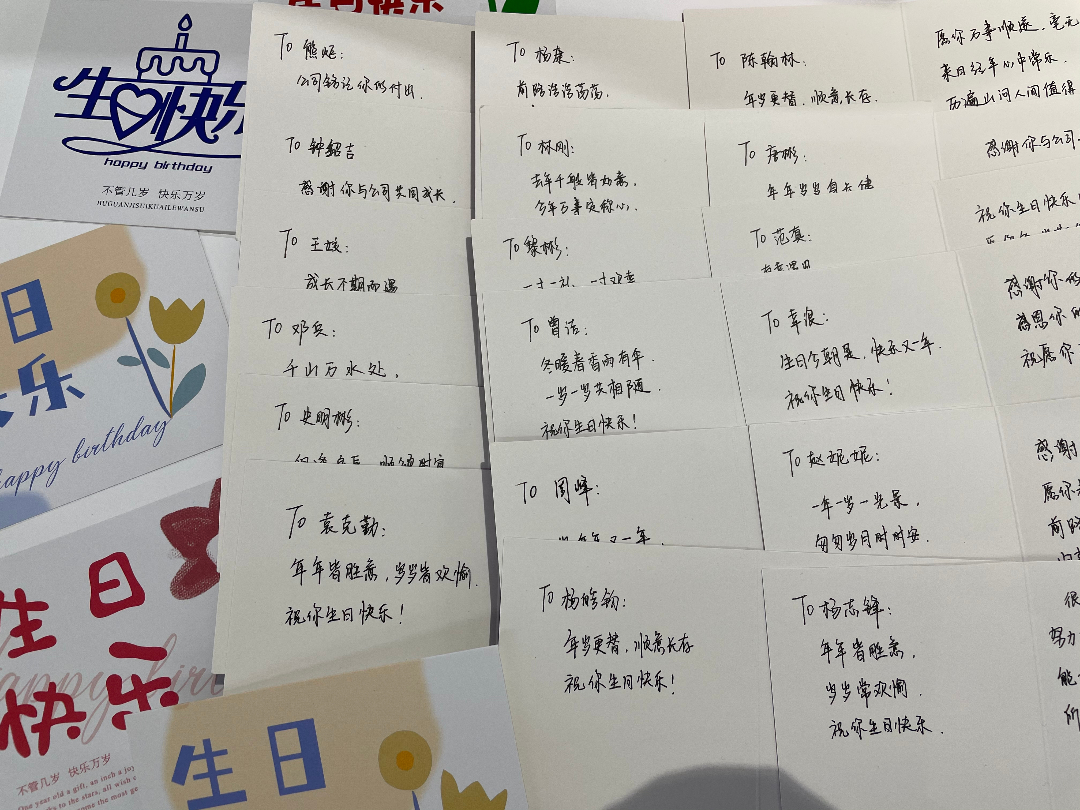 生日快乐
happy birthday
不管几岁 快乐万岁
BUGUANJISUIKUAILEWANSUI
日
快乐
happy birthday
生日
快乐
不管几岁 快乐万岁
One year old a gift, an inch a joy
生日
To 熊姬:
公司铭记你的付出.
To 钟绍吉
感谢你与公司共同成长.
To 王媛:
成长不期而遇
To 邓兵:
千山万水处,
To 史明彬:
To 袁克勤:
年年皆胜意,岁岁皆欢愉.
祝你生日快乐!
To 杨桀:
前路浩浩荡荡,
To 林刚:
去年千般皆如意,
今年万事定称心.
To 黎彬:
To 曾洁:
冬暖春香雨有年
一岁一岁共相随
祝你生日快乐!
To 周峰:
岁年年又一年.
To 杨皓钧:
年岁更替,顺意长存
祝你生日快乐!
To 陈翰林:
年岁更替,顺意长存.
To 唐彬:
年年岁岁自长健
To 范真:
To 幸浪:
生日今朝是,快乐又一年.
祝你生日快乐!
To 赵妮妮:
一年一岁一光景,
匆匆岁月时时安.
To 杨志锋:
年年皆胜意,
岁岁常欢愉.
祝你生日快乐.
愿你万事顺遂,毫无
来日经年心中常乐.
历遍山河人间值得
感谢你与公司
祝你生日快乐!
感谢你的
感恩你的
祝愿你
感谢
愿你
前路
很
努力
能
所